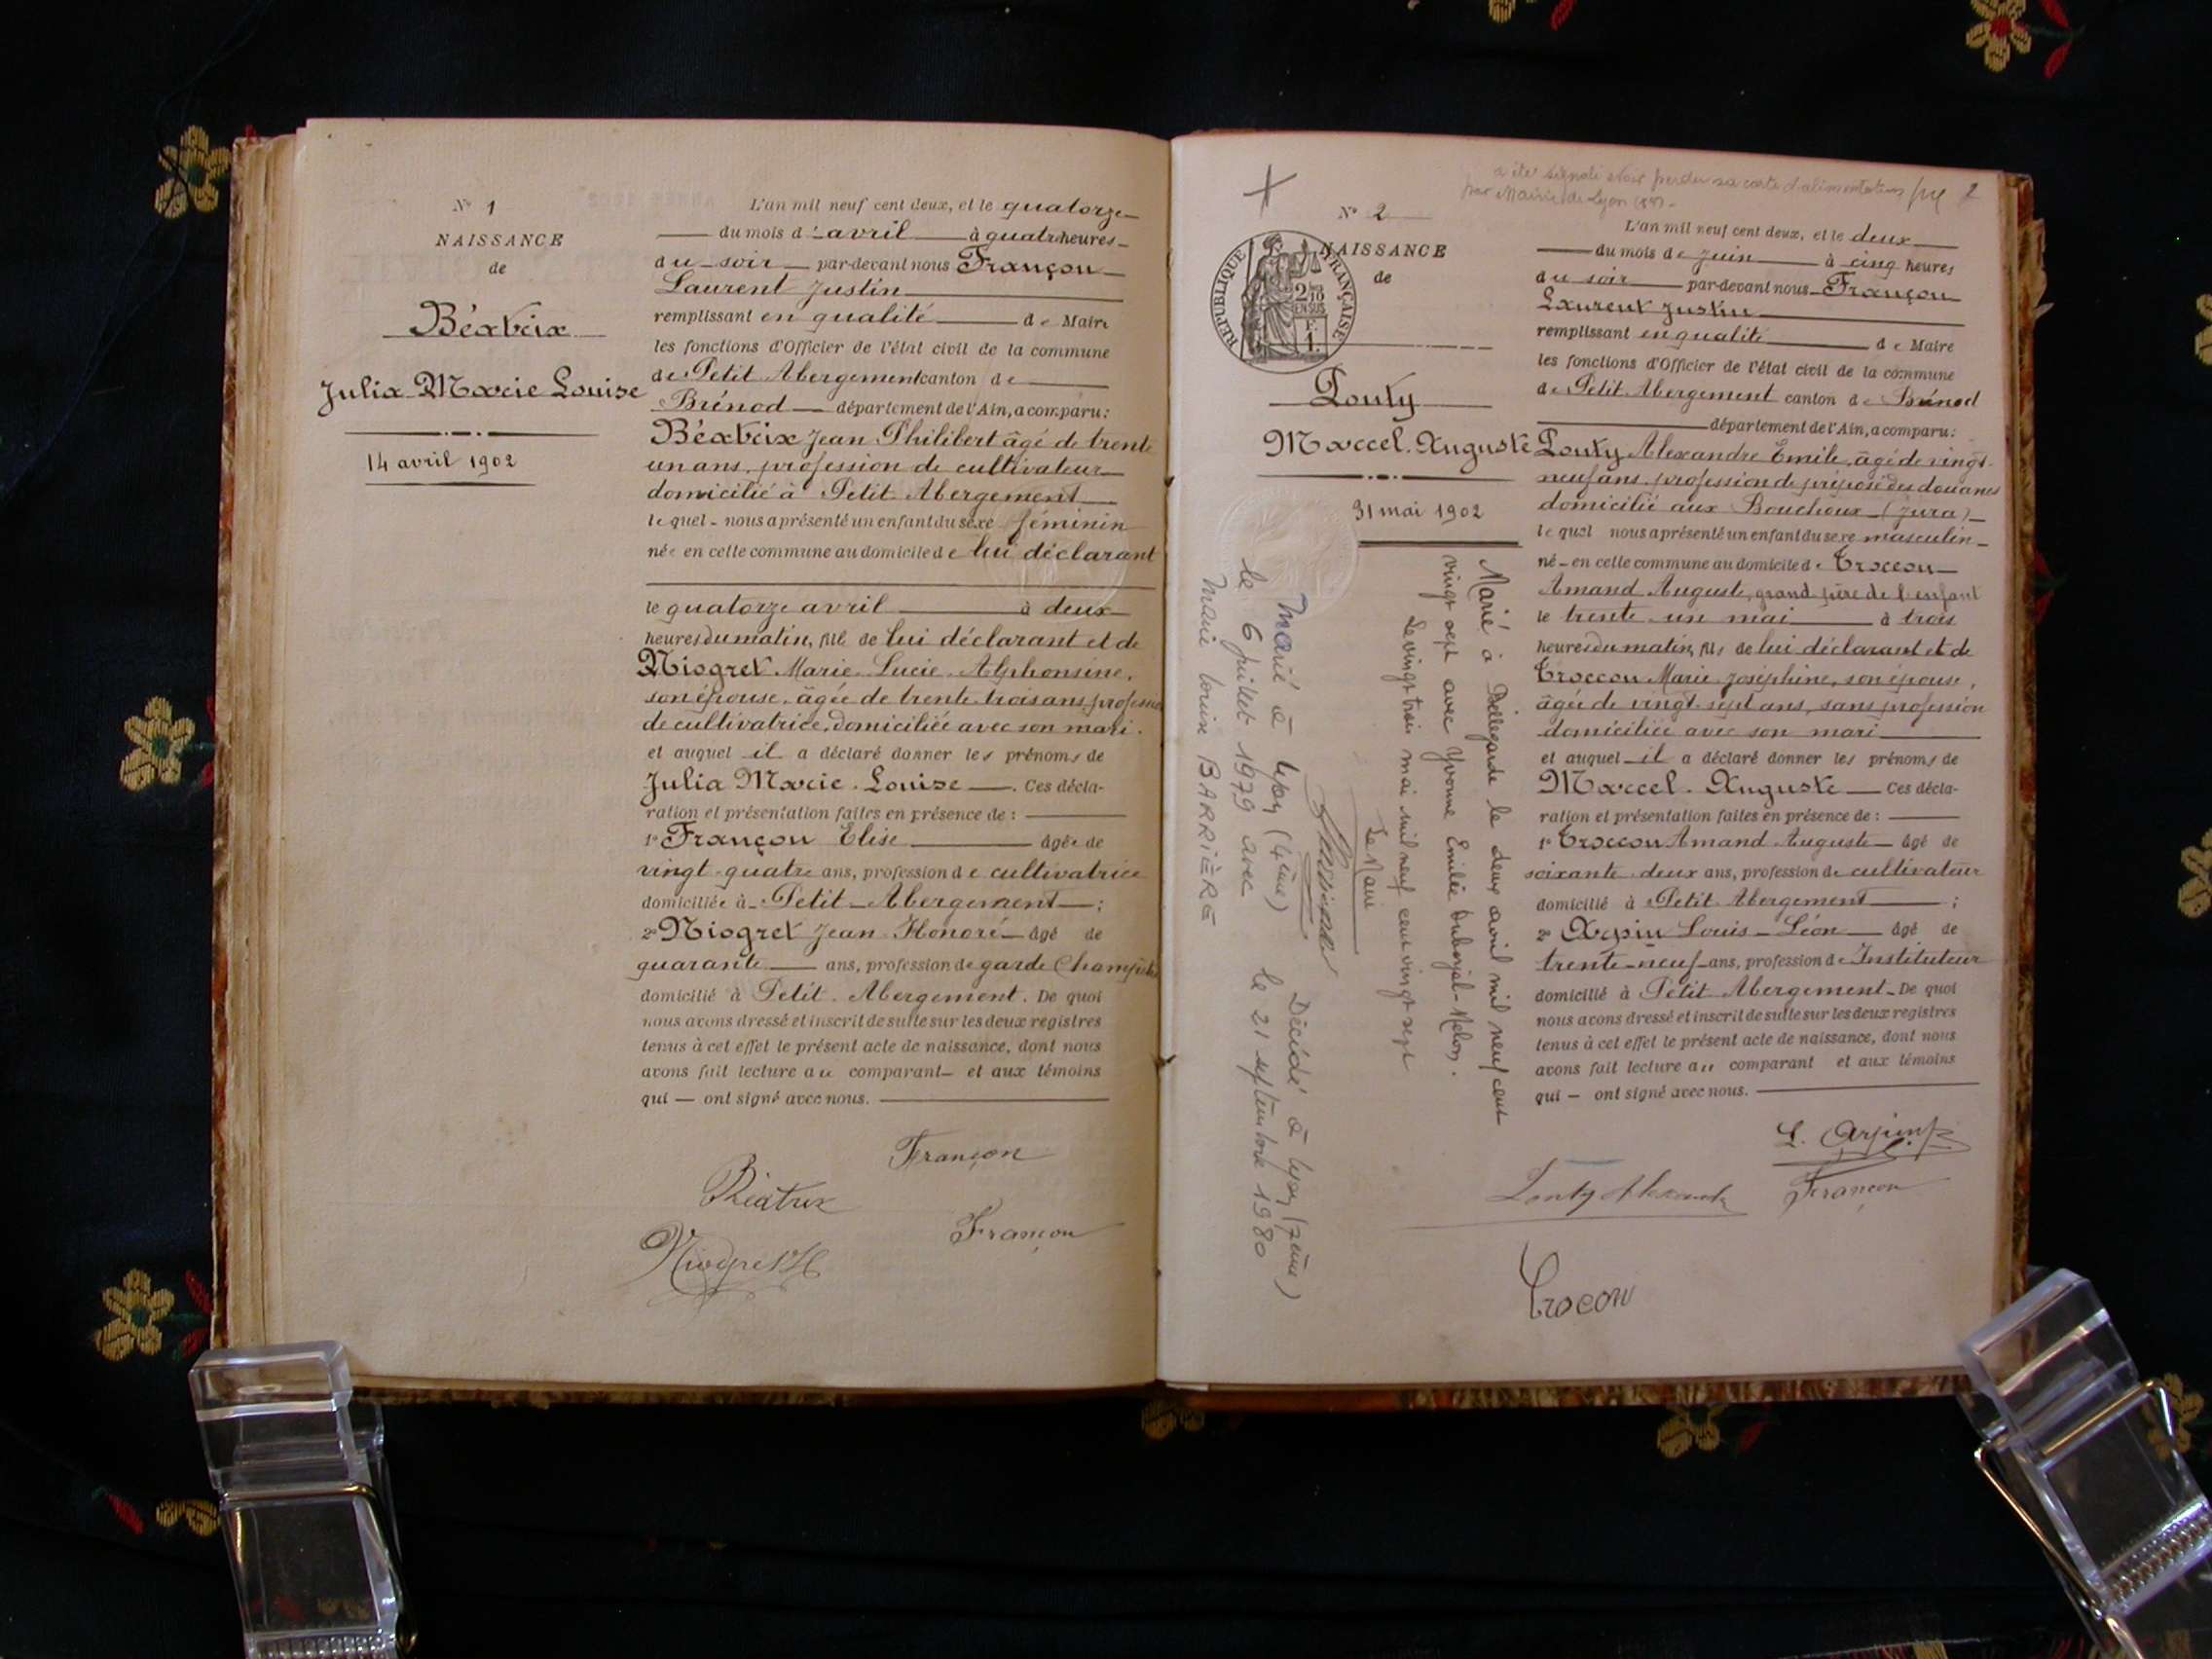 N° 1
NAISSANCE
de
Béatrix
Julia Marie Louise
14 avril 1902
L'an mil neuf cent deux, et le quatorze
du mois d'avril à quatre heures
du soir par-devant nous Françon
Laurent Justin
remplissant en qualité de Maire
les fonctions d'Officier de l'état civil de la commune
de Petit Abergement canton de
Brénod département de l'Ain, a comparu:
Béatrix Jean Philibert âgé de trente
un ans, profession de cultivateur
domicilié à Petit Abergement
lequel nous a présenté un enfant du sexe féminin
née en cette commune au domicile de lui déclarant
le quatorze avril à deux
heures du matin, fille de lui déclarant et de
Niogret Marie Lucie Alphonsine,
son épouse, âgée de trente trois ans, profession
de cultivatrice, domiciliée avec son mari.
et auquel il a déclaré donner les prénoms de
Julia Marie Louise. Ces décla-
ration et présentation faites en présence de :
1° Françon Elise âgée de
vingt-quatre ans, profession de cultivatrice
domiciliée à Petit Abergement ;
2° Niogret Jean Honoré âgé de
quarante ans, profession de garde Champêtre
domicilié à Petit Abergement. De quoi
nous avons dressé et inscrit de suite sur les deux registres
tenus à cet effet le présent acte de naissance, dont nous
avons fait lecture au comparant et aux témoins
qui ont signé avec nous.
Françon
Béatrix
Françon
Niogret H
a été signalé avoir perdu sa carte d'alimentation
par Mairie de Lyon
2
N° 2
NAISSANCE
de
REPUBLIQUE FRANÇAISE
2/10
EN SUS
F.
1.
Louty
Marcel Auguste
31 mai 1902
Marié à Bellegarde le deux avril mil neuf cent
vingt sept avec Yvonne Emilie
Le vingt trois mai mil neuf cent vingt sept
Le Maire
Marié à Lyon (4ème)
le 6 juillet 1979 avec
Marie Louise BARRIÈRE
Décédé à Lyon (7ème)
le 21 septembre 1980
L'an mil neuf cent deux, et le deux
du mois de juin à cinq heures
du soir par-devant nous Françon
Laurent Justin
remplissant en qualité de Maire
les fonctions d'Officier de l'état civil de la commune
de Petit Abergement canton de Brénod
département de l'Ain, a comparu:
Louty Alexandre Emile, âgé de vingt-
neuf ans, profession de préposé des douanes
domicilié aux Bouchoux (Jura)
lequel nous a présenté un enfant du sexe masculin
né en cette commune au domicile de Troccon
Amand Auguste, grand père de l'enfant
le trente un mai à trois
heures du matin, fils de lui déclarant et de
Troccon Marie Joséphine, son épouse,
âgée de vingt-sept ans, sans profession
domiciliée avec son mari
et auquel il a déclaré donner les prénoms de
Marcel Auguste Ces décla-
ration et présentation faites en présence de :
1° Troccon Amand Auguste âgé de
soixante-deux ans, profession de cultivateur
domicilié à Petit Abergement ;
2° Arpin Louis-Léon âgé de
trente-neuf ans, profession d'Instituteur
domicilié à Petit Abergement De quoi
nous avons dressé et inscrit de suite sur les deux registres
tenus à cet effet le présent acte de naissance, dont nous
avons fait lecture au comparant et aux témoins
qui ont signé avec nous.
L. Arpin
Louty Alexandre
Françon
Trocon